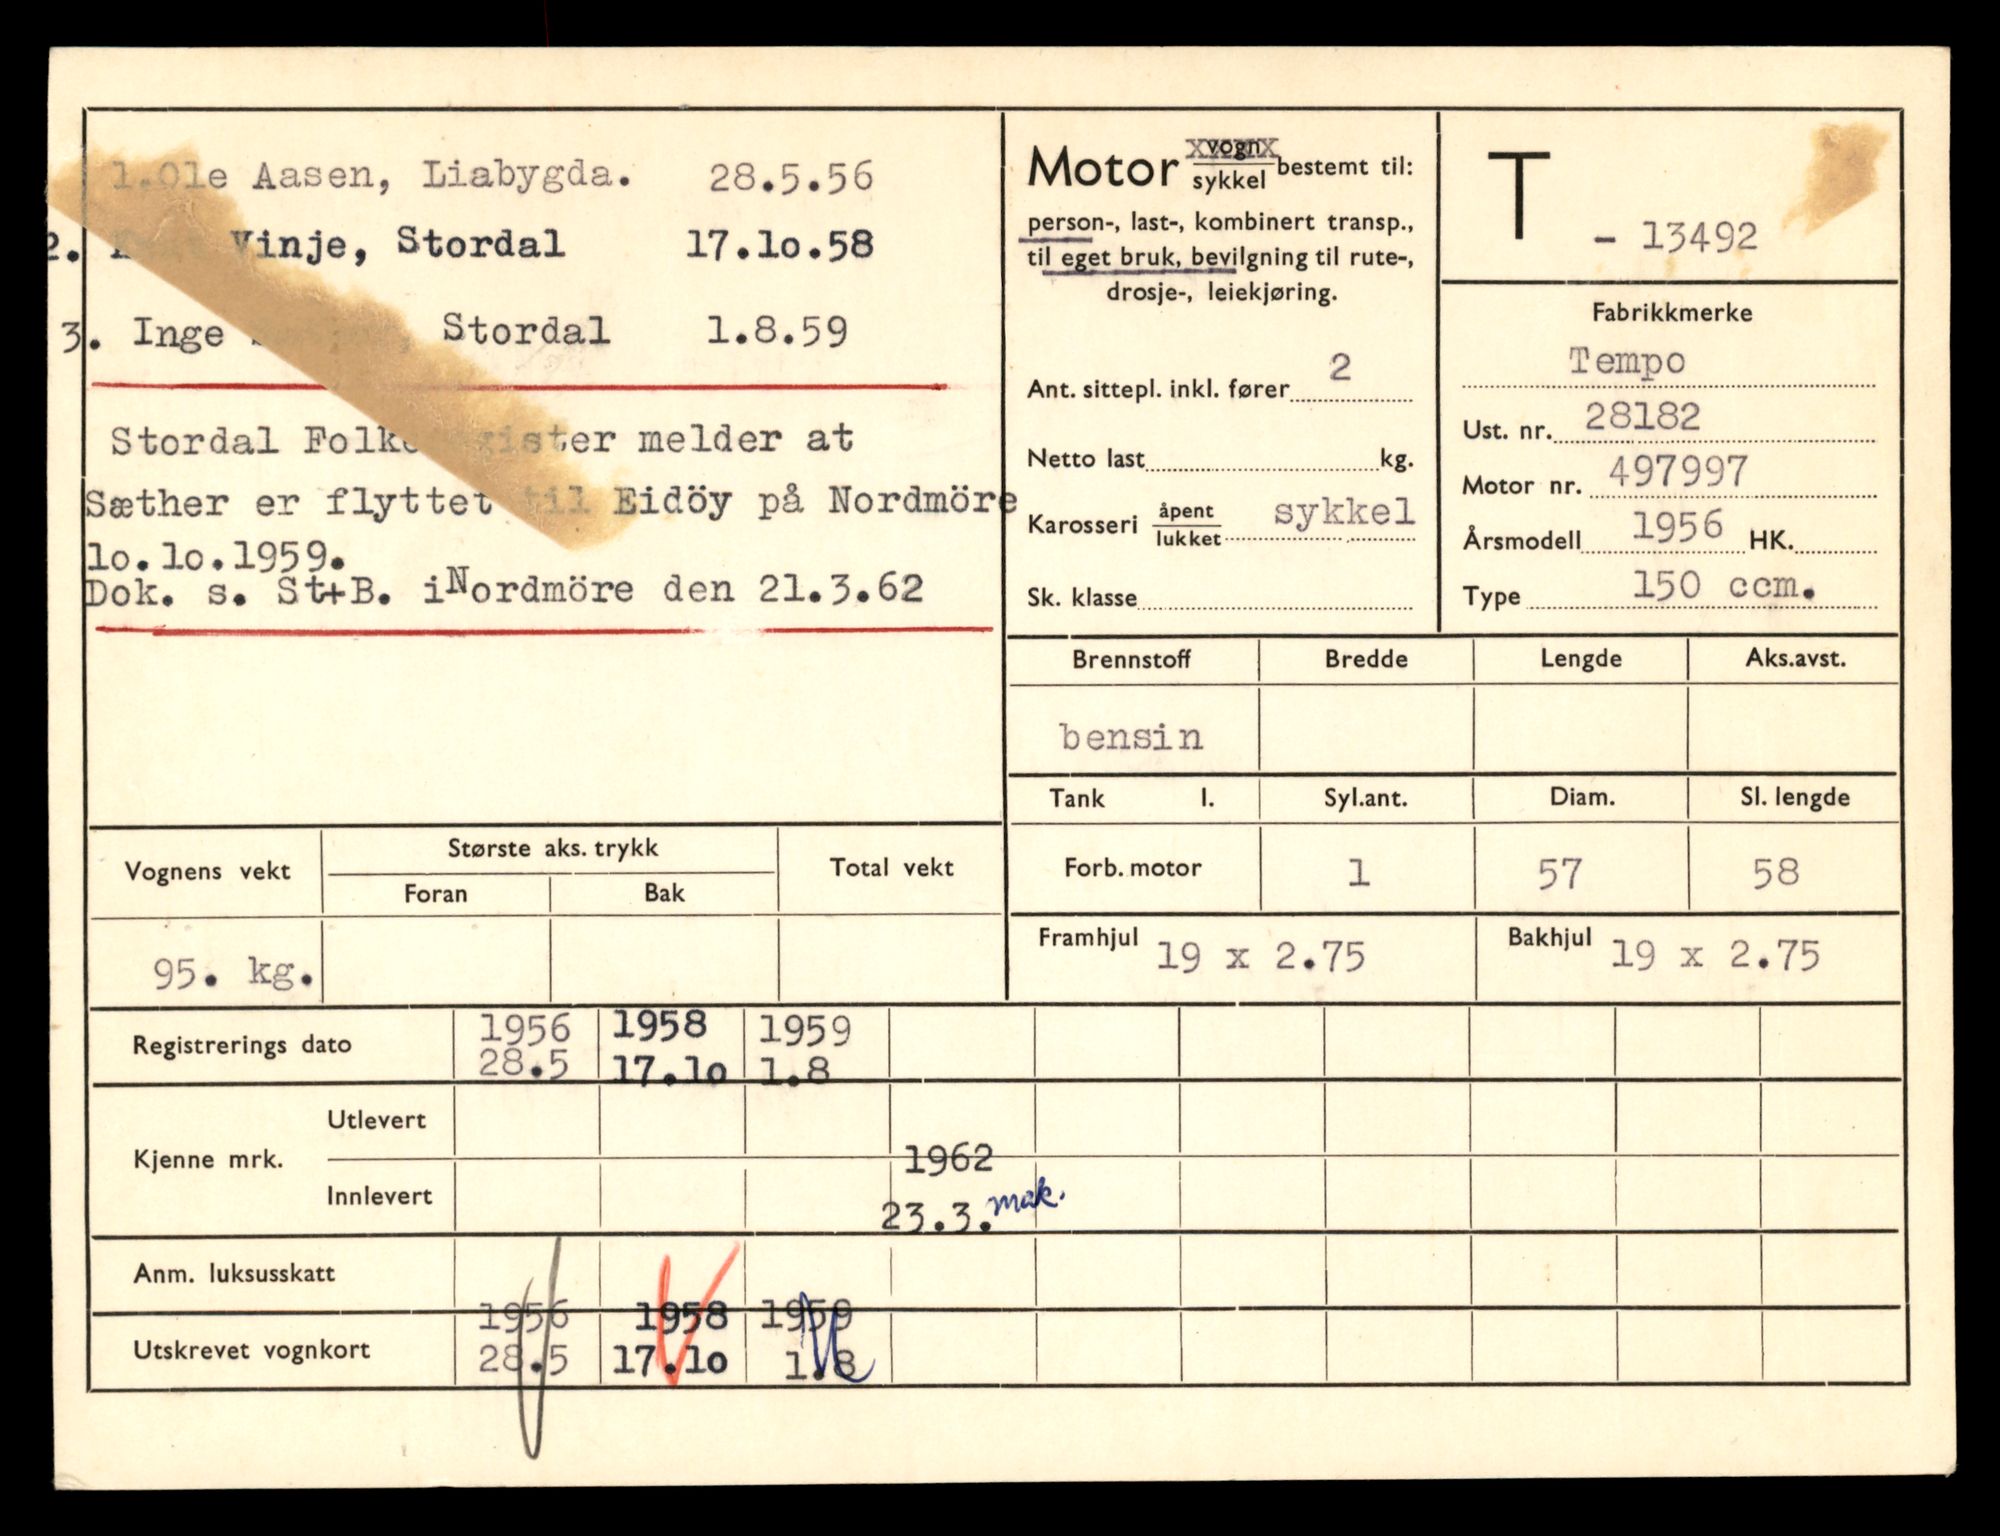 1.Ole Aasen, Liabygda. 28.5.56
2. Vinje, Stordal 17.lo.58
3. Inge Stordal 1.8.59
Stordal Folkeregister melder at
Sæther er flyttet til Eidöy på Nordmöre
lo.lo.1959.
Dok. s. St+B. i Nordmöre den 21.3.62
Motor vogn/sykkel bestemt til:
person-, last-, kombinert transp.,
til eget bruk, bevilgning til rute-,
drosje-, leiekjøring.
Ant. sittepl. inkl. fører 2
Netto last kg.
Karosseri åpent/lukket sykkel
Sk. klasse
T - 13492
Fabrikkmerke
Tempo
Ust. nr. 28182
Motor nr. 497997
Årsmodell 1956 HK.
Type 150 ccm.
Brennstoff Bredde Lengde Aks.avst.
bensin
Tank l. Syl.ant. Diam. Sl. lengde
Forb. motor 1 57 58
Framhjul 19 x 2.75 Bakhjul 19 x 2.75
Vognens vekt Største aks. trykk Total vekt
Foran Bak
95. kg.
Registrerings dato 1956 1958 1959
28.5 17.lo 1.8
Kjenne mrk. Utlevert
1962
Innlevert 23.3. mak.
Anm. luksusskatt
1956 1958 1959
Utskrevet vognkort 28.5 17.lo 1.8